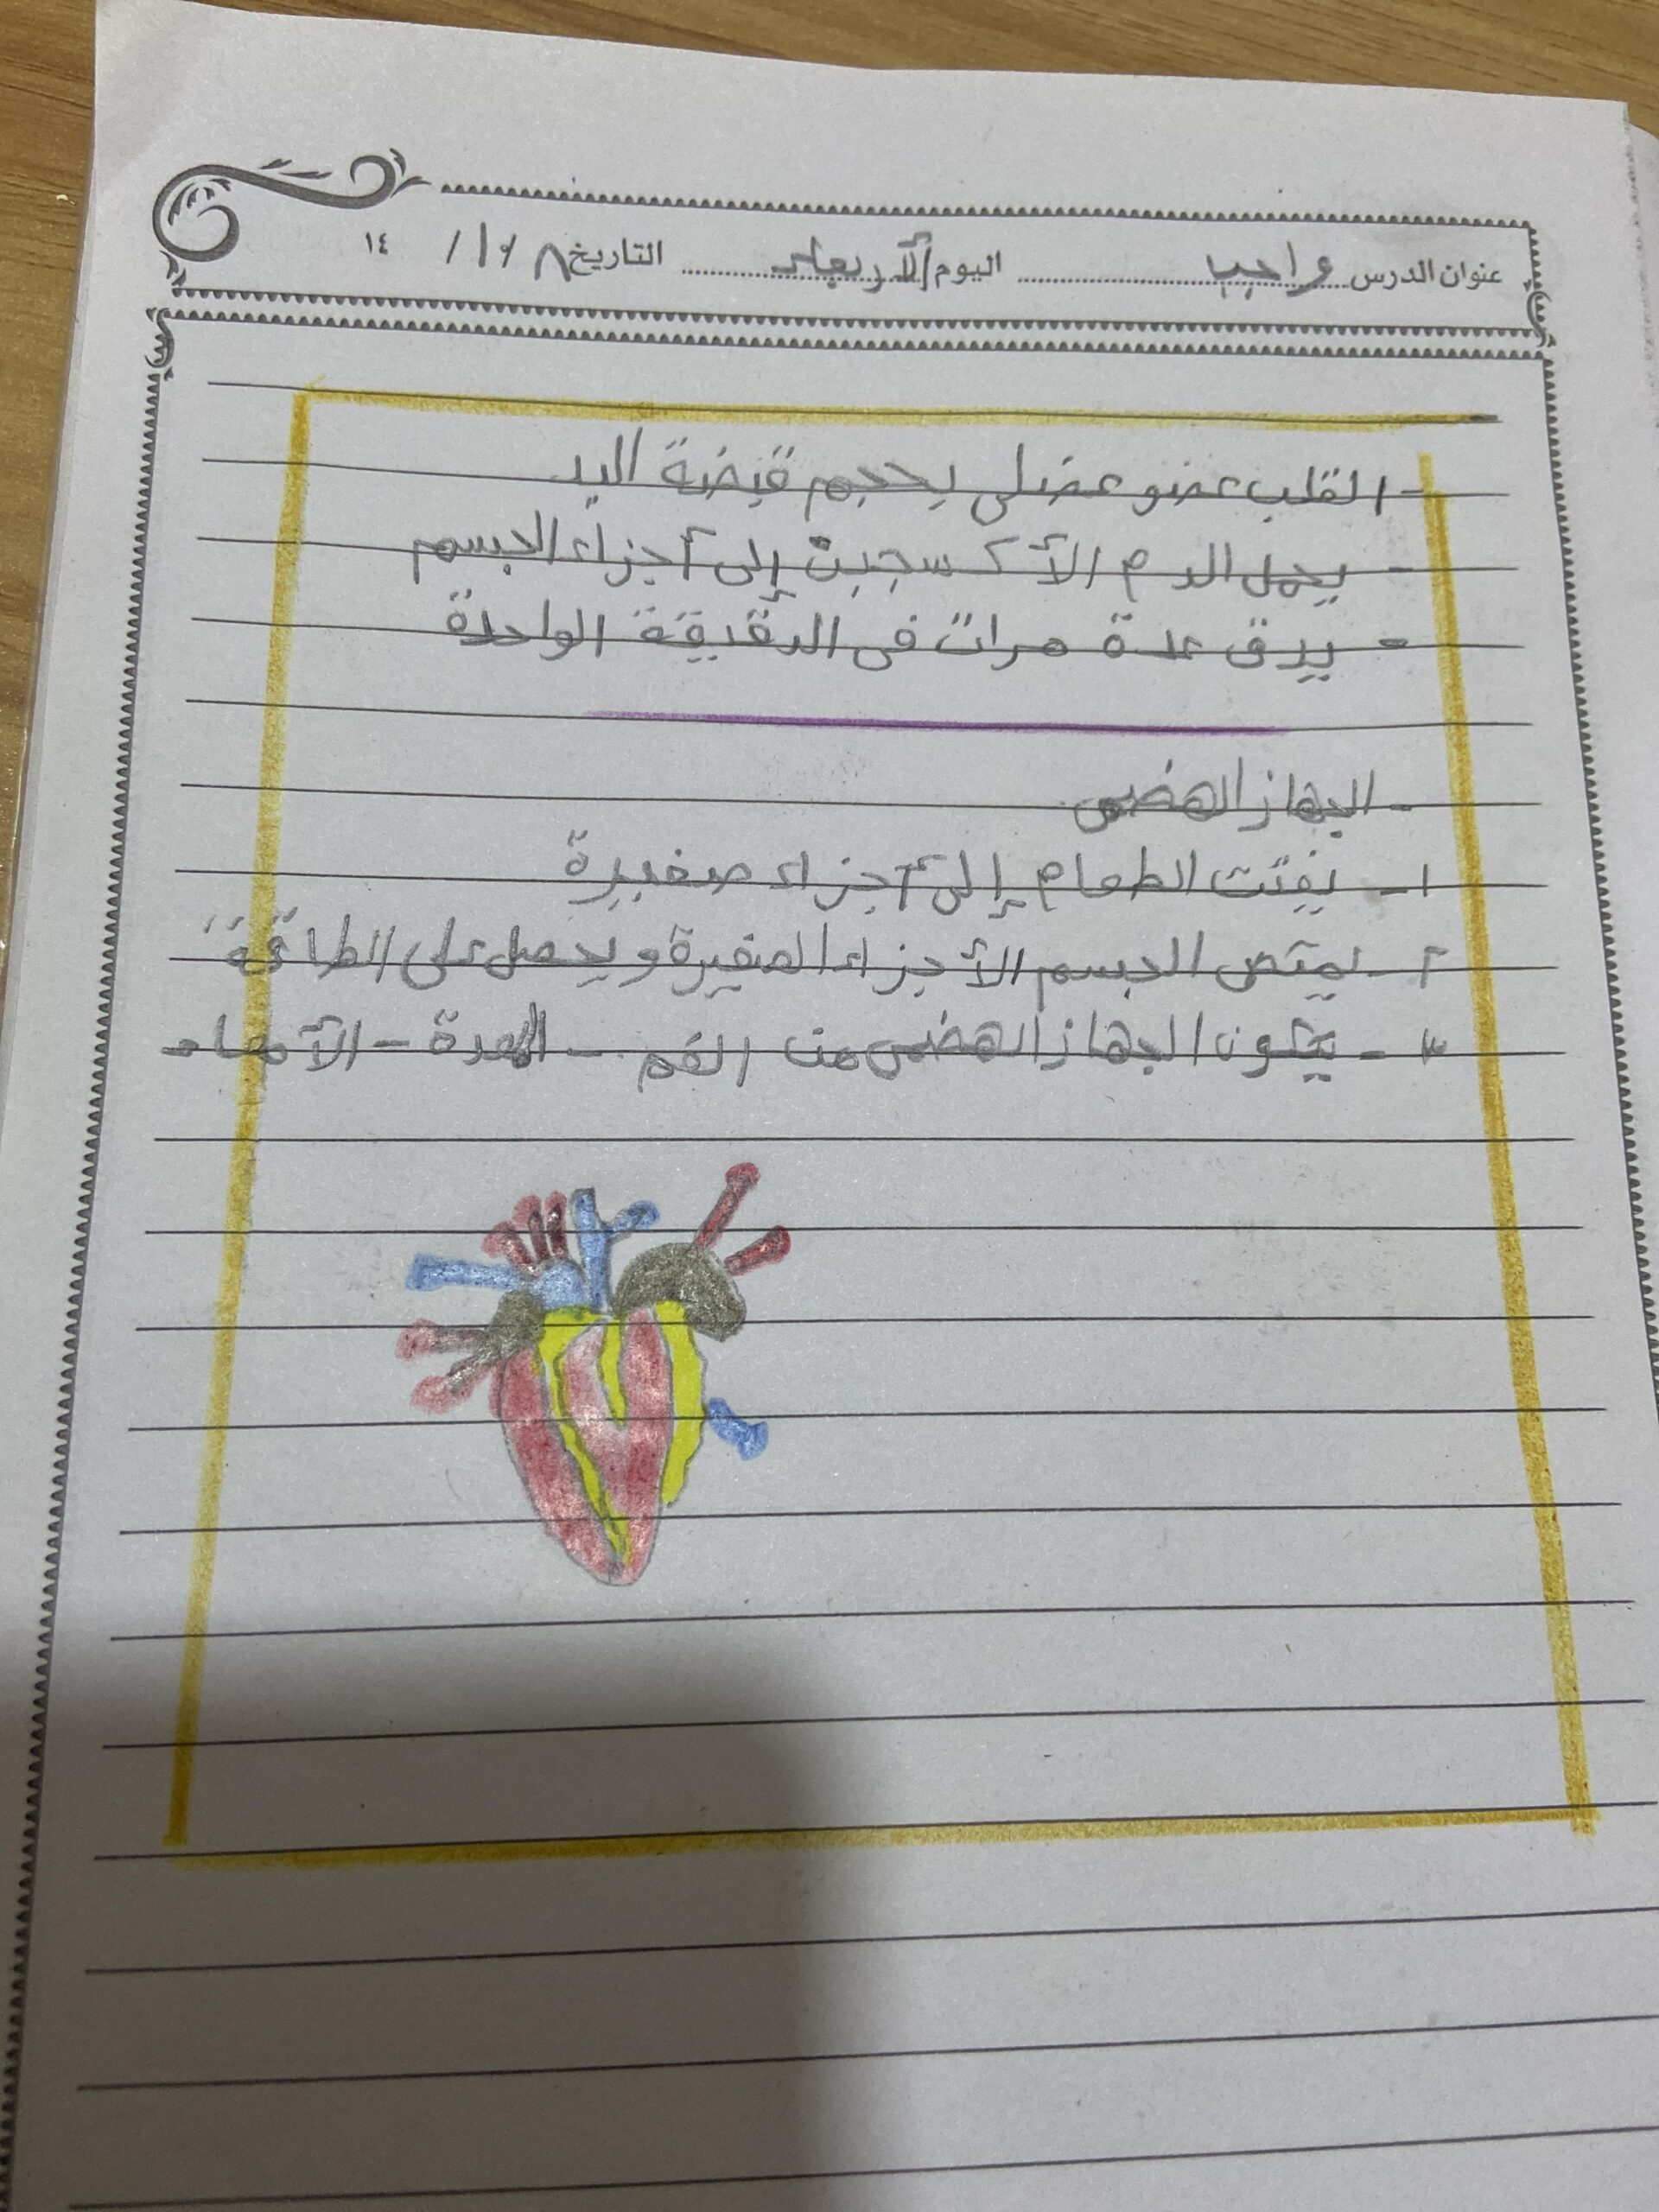 عنوان الدرس واجب اليوم الأربعاء التاريخ ٨ / / ١٤
- القلب عضو عضلي بحجم قبضة اليد
- يحمل الدم الأكسجين إلى أجزاء الجسم
- يدق عدة مرات في الدقيقة الواحدة
- الجهاز الهضمي
١- يفتت الطعام إلى أجزاء صغيرة
٢- يمتص الجسم الأجزاء الصغيرة ويحصل على الطاقة
٣- يتكون الجهاز الهضمي من الفم - المعدة - الأمعاء